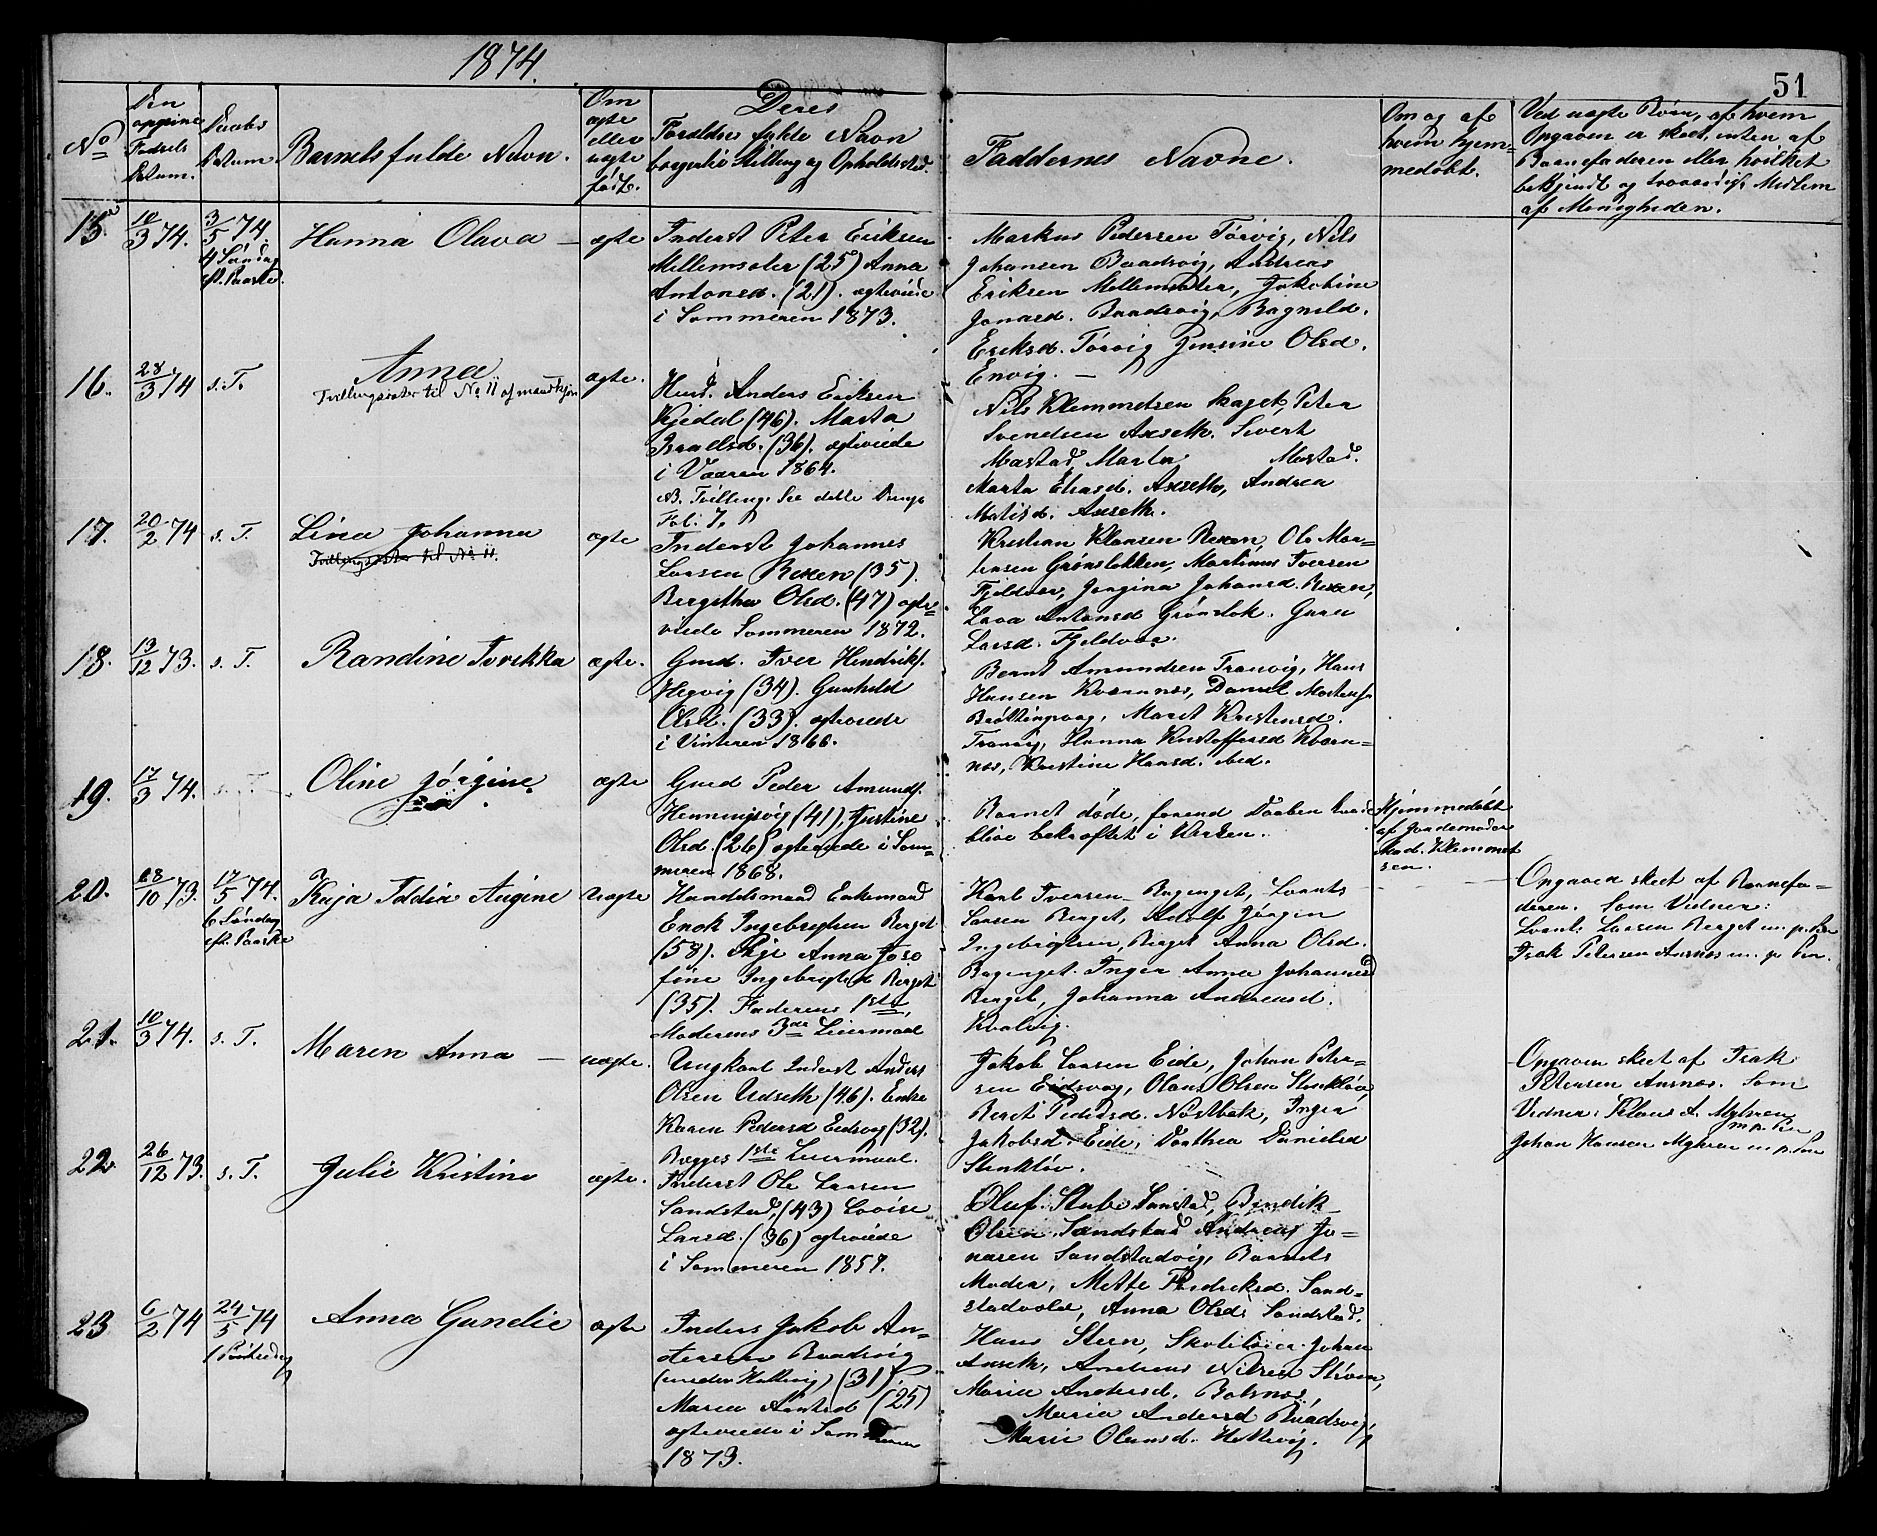 1874.
51
No
Den opgivne Fødsels Datum.
Daabs Datum.
Barnets fulde Navn.
Om ægte eller uægte født.
Deres
Forældres fulde Navn
borgerlige Stilling og Opholdssted.
Faddernes Navne.
Om og af
hvem hjem-
medøbt.
Ved uægte Børn, af hvem
Opgaven er skeet, enten af
Barnefaderen eller hvilket
bekjendt og troværdigt Medlem
af Menigheden.
15. 10/3 74. 3/5 74. 4 Søndag ef. Paaske. Hanna Olava — ægte
Inderst Peter Eriksen
Mellemsæter (25) Anna
Antonsd. (21). ægteviede
i Sommeren 1873.
Markus Pedersen Tørvig, Nils
Johansen Baadsvig, Andreas
Eriksen Mellemsæter, Jakobine
Jonasd. Baadsvig, Ragnild.
Eriksd. Tørvig Jensine Olsd.
Ervig. —
16. 28/3 74 s. T. Anna ægte.
Tvillingsøster til No 11 af mandkjøn
Husm. Anders Eriksen
Kjedal (46). Marta
Iversd. (36). ægteviede
i Vaaren 1864.
NB. Tvilling. See dette Prnge
Fol. 7.
Nils Klemmetsen Haget, Peter
Svendsen Axseth. Sivert
Mastad, Marta Mastad.
Marta Eliasd. Axseth, Andrea
Matisd. Axseth.
17. 20/2 74 s. T. Lina Johanna ægte
Tvillingsøster til No 11.
Inderst Johannes
Larsen Rexen (35).
Bergitha Olsd. (47) ægte=
viede Sommeren 1872.
Kristian Klausen Rexen, Ole Mor-
tensen Grønsløkken, Martinus Iversen
Fjeldvær, Jorgina Johansd. Rexen,
Lava Antonsd Grønsløk. Guru
Larsd. Fjeldvær.
18. 13/12 73. s. T. Randine Ivrikka ægte.
Gmd. Iver Hendriks.
Hegvig (34). Gunhild
Olsd. (33). ægteviede
i Vinteren 1866.
Bernt Amundsen Tranvig, Hans
Hansen Kværnnæs, Daniel Mortens.
Brøttingvaag, Maret Kristensd.
Tranvig, Hanna Kristoffersd Kværn-
næs, Kristine Hansd. ibid.
19. 17/3 74. s. T. Oline Jørgine. ægte
Gmd Peder Amunds.
Henningsvig (41), Justine
Olsd. (26) ægteviede i Som-
meren 1868.
Barnet døde, forend Daaben kunde
blive bekræftet i Kirken.
Hjemmedøbt
af Jordemoder
Mad. Klemmet
sen.
20. 28/10 73. 17/5 74. 6 Søndag eft. Paaske Kaja Iddia Augine Uægte
Handelsmand Enkemand
Enok Ingebrigtsen Berget
(58). Pige Anna Jose
fine Ingebrigtsd Berget
(35). Faderens 1ste,
Moderens 3die Leiermaal
Karl Iversen Bagenget, Lornts
Larsen Berget, Adolf Jørgen
Ingebrigtsen, Berget Anna Olsd.
Bagenget. Inger Anna Johannesd
Berget, Johanna Andreasd.
Kvalvig.
Opgaven skeet af Barnefa-
deren. Som Vidner:
Lornts Larsen Berget m. p. Pen
Isak Petersen Ansnæs m. p. Pen.
21. 10/3 74. s. T. Maren Anna — uægte.
Ungkarl Inderst Anders
Olsen Udseth (46). Enke
Karen Pedersd Eidsvog (32).
Begges 1ste Leiermaal.
Jakob Larsen Eide, Johan Peter-
sen Eidsvaag, Olaus Olsen Stenkløv,
Beret Pedersd. Nøstbak, Inger
Jakobsd. Eide, Dorthea Danielsd
Stenkløv.
Opgaven skeet af Isak
Petersen Ansnæs. Som
Vidner: Klaus A. Myhren
m. p. Pen
Johan Hansen Myhren m. p. Pen
22 26/12 73. s. T. Julie Kristine ægte.
Inderst Ole Larsen
Sandstad, (43) Lovise
Larsd. (36) ægteviede
i Sommeren 1857.
Oluf Stube Sanstad, Bendik
Olsen Sandstad Andreas Jo-
nasen Sandstadvig, Barnets
Moder, Mette Fredriksd. Sand-
stadvold, Anna Olsd. Sandstad.
23 6/2 74 24/5 74 1 Pintsedag Anna Gundlie ægte
Inders Jakob An-
dersen Baadsvig
(31),
Maria Arntsd (25)
ægteviede i Sommeren
1873.
Hans Steen, Skolelærer Johan
Axseth, Andreas Nilsen Strøm,
Maria Andersd. Balsnæs,
Maria Andersd Baadsvig,
Marie Olausd. Hattevig.